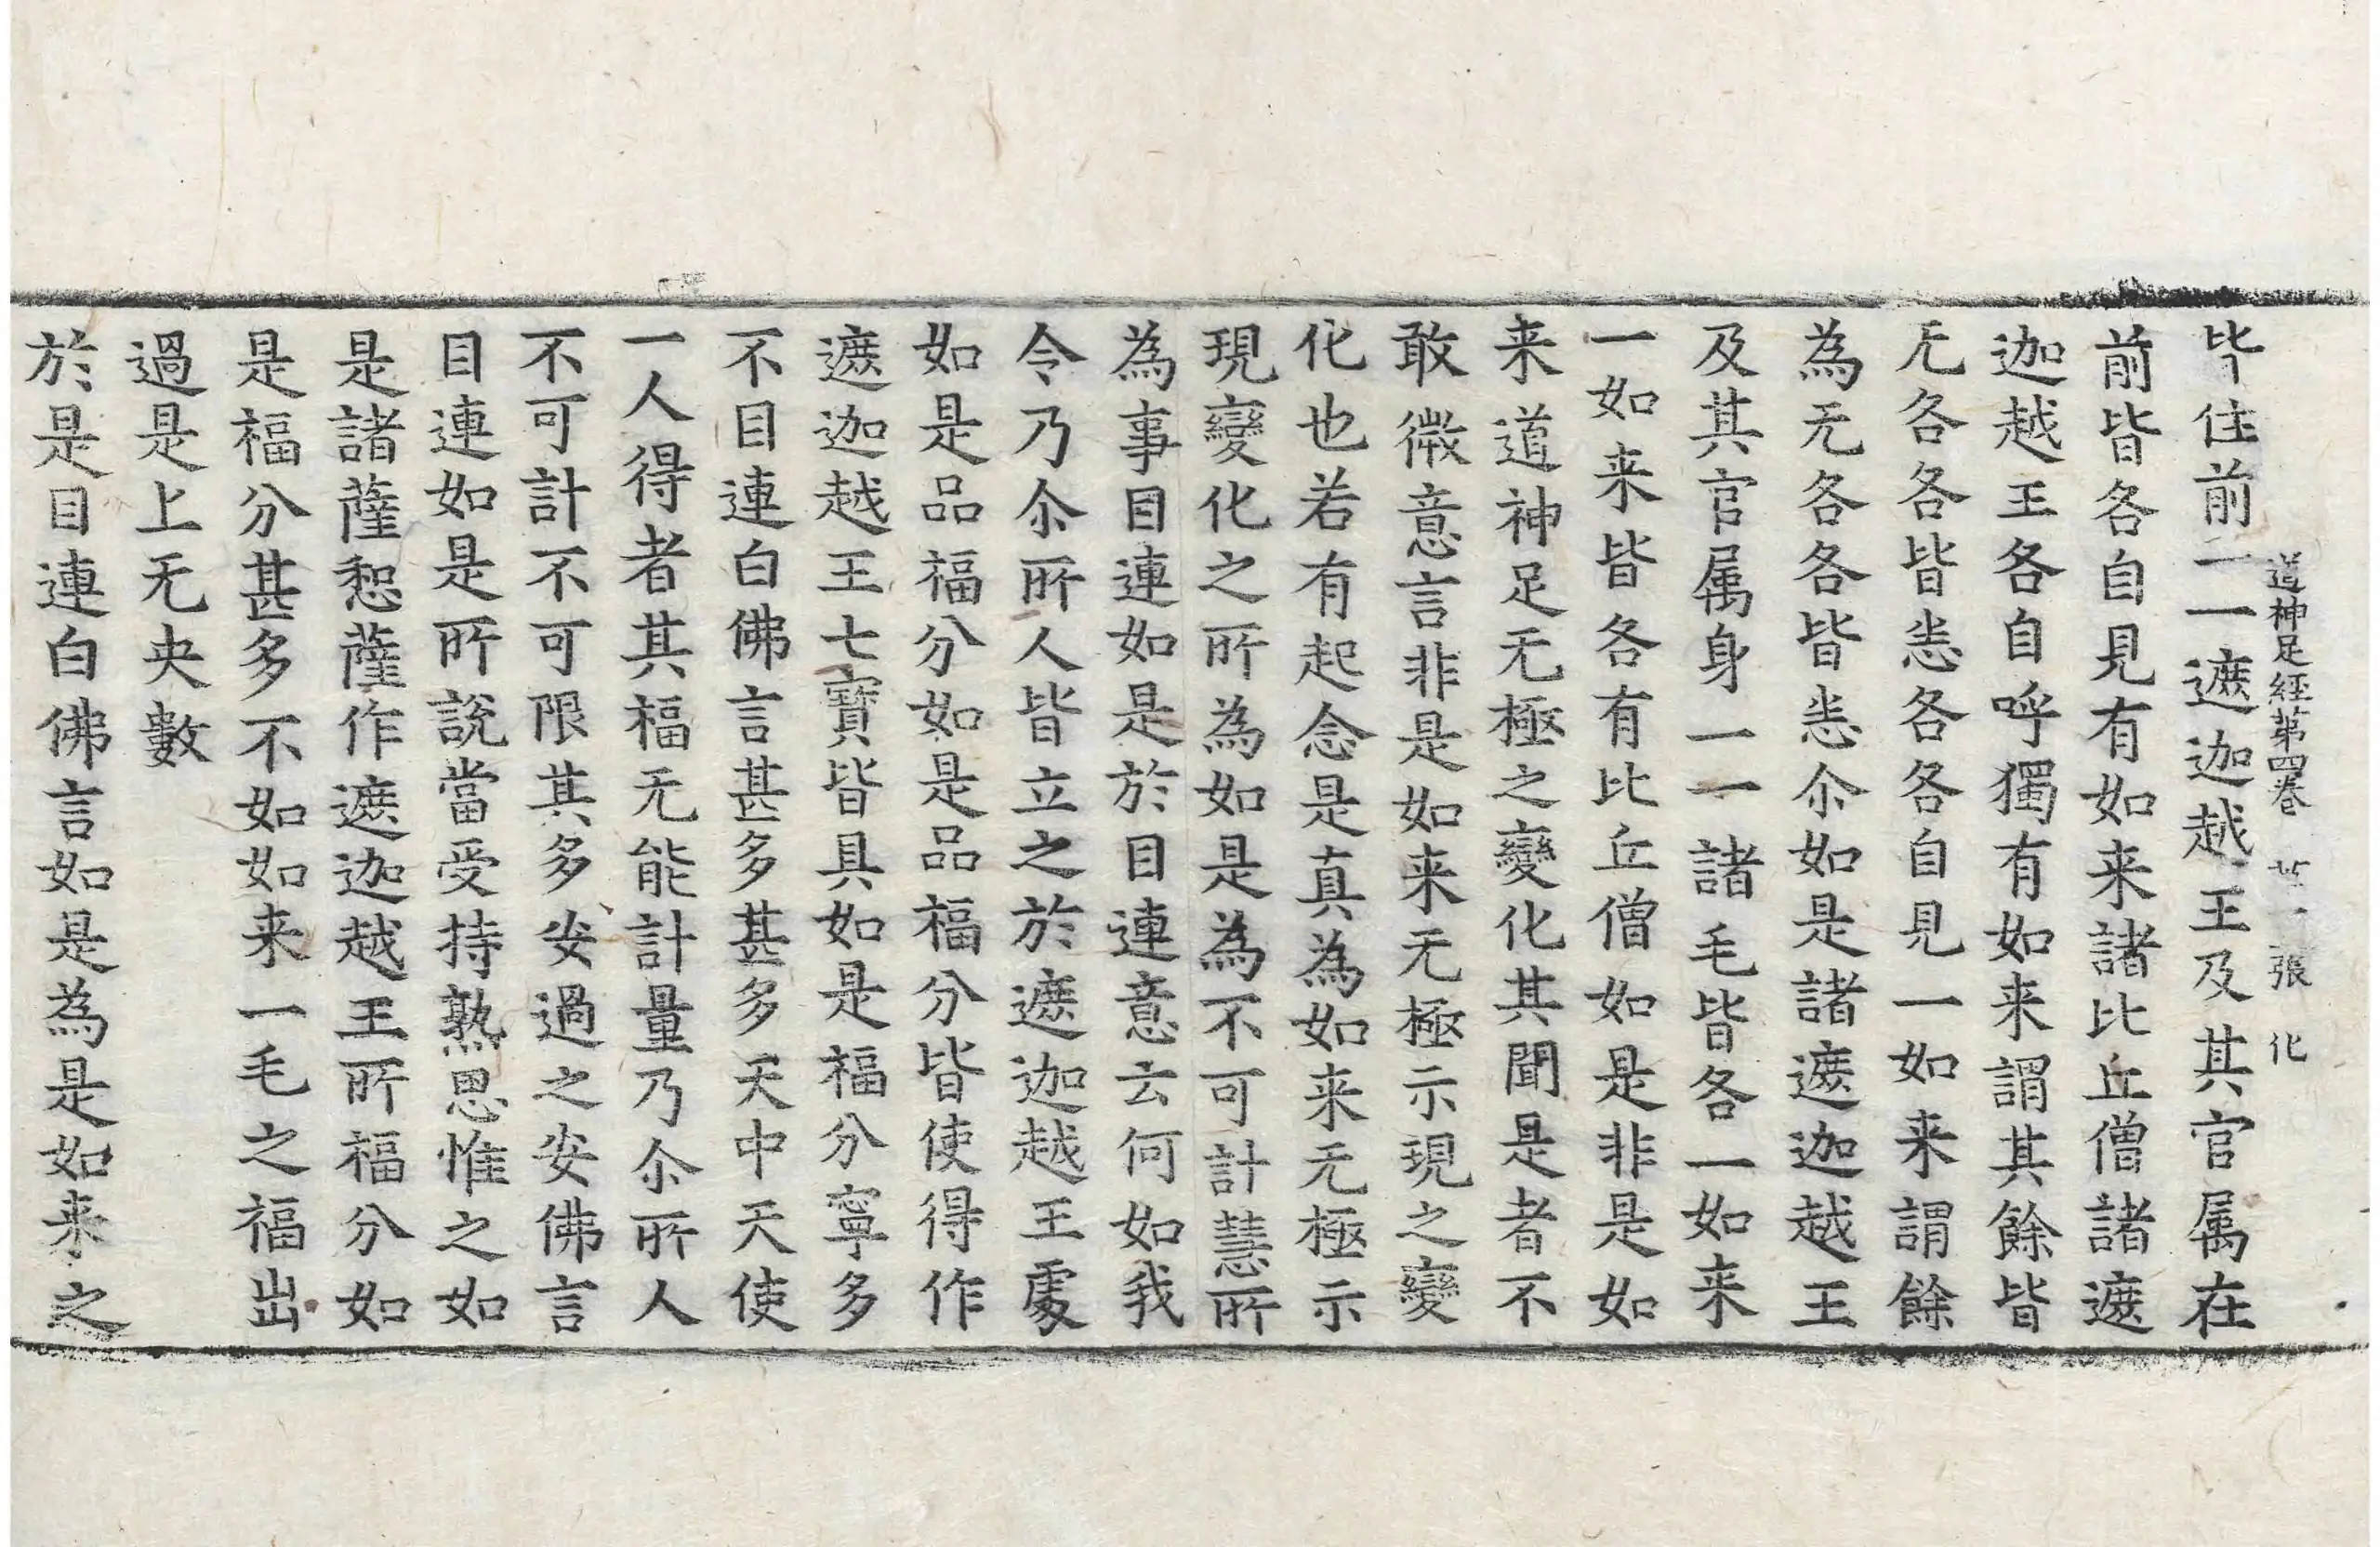 道神足經第四卷　廿一張　化
毕住前一一遮迦越王及其官属在
前皆各自見有如来諸比丘僧諸遮
迦越王各自呼獨有如来謂其餘皆
无各各皆恙各各自見一如来謂餘
為无各各皆恙尒如是諸遮迦越王
及其官属身一一諸毛皆各一如来
一如来皆各有比丘僧如是非是如
来道神足无極之變化其聞是者不
敢微意言非是如来无極示現之變
化也若有起念是真為如来无極示
現變化之所為如是為不可計慧所
為事目連如是於目連意云何如我
令乃尒所人皆立之於遮迦越王處
如是品福分如是品福分皆使得作
遮迦越王七寶皆具如是福分寧多
不目連白佛言甚多甚多天中天使
一人得者其福无能計量乃尒所人
不可計不可限其多安過之安佛言
目連如是所說當受持熟思惟之如
是諸薩惒薩作遮迦越王所福分如
是福分甚多不如如来一毛之福出
過是上无央數
於是目連白佛言如是為是如来之